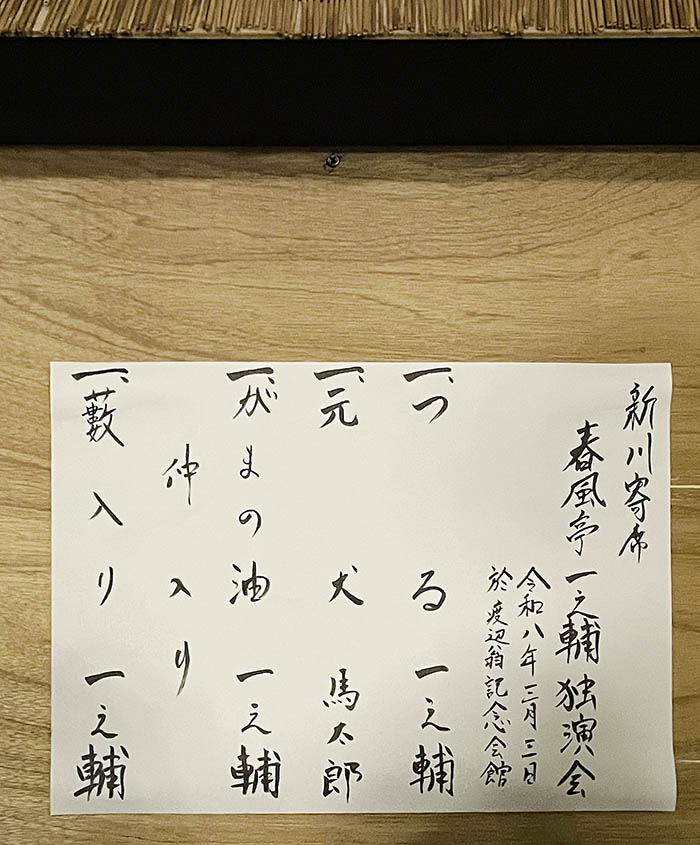 新川寄席
春風亭一之輔独演会
令和八年三月三日
於渡辺翁記念会館
一、つる 一之輔
一、元犬 馬太郎
一、がまの油 一之輔
仲入り
一、藪入り 一之輔